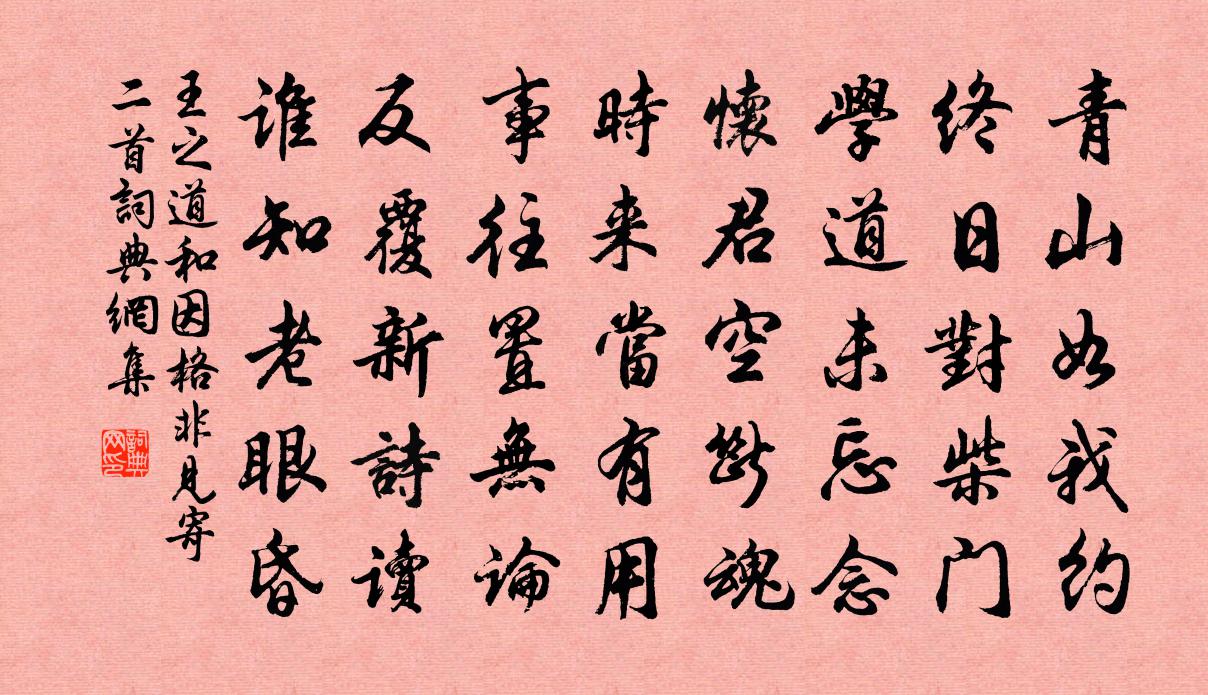 青山如我約
終日對柴门
學道未忘念
懷君空斷魂
時来當有用
事往置無論
反覆新詩讀
谁知老眼昏
王之道和因格非見寄
二首詞典網集
詞典
网印